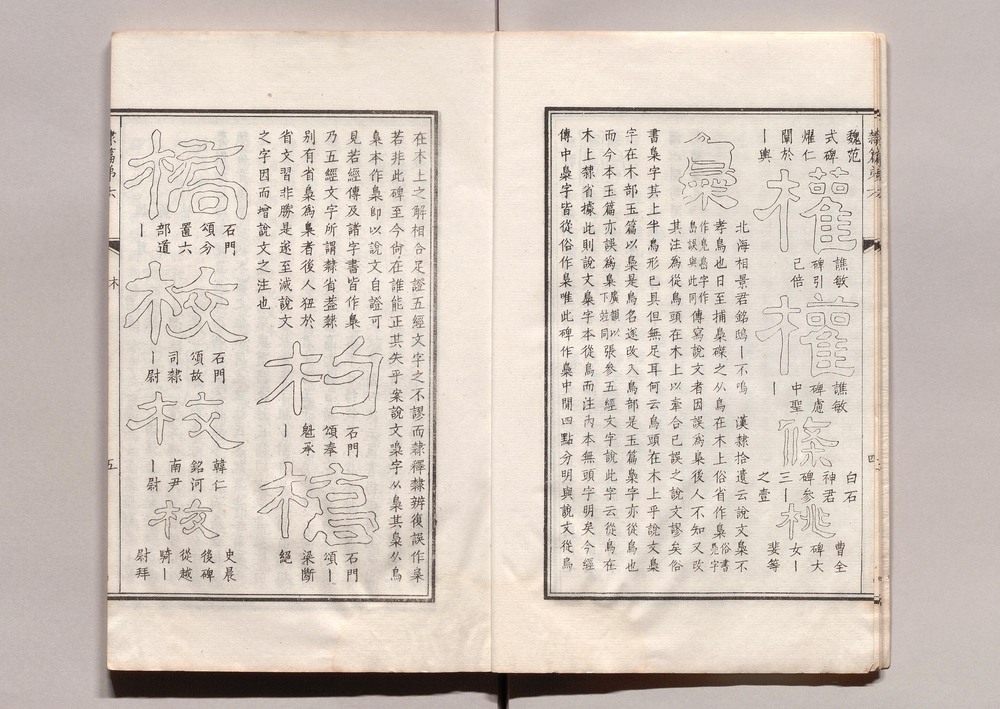 魏范
式碑
燿仁
闡於
丨輿
權
譙敏
碑引
己倍
權
譙敏
碑慮
中聖
丨
條
白石
神君
碑參
三丨
之壹
桃
曹全
碑大
女丨
斐等
梟
北海相景君銘鴟丨不鳴　漢隸拾遺云說文梟不
孝鳥也日至捕梟磔之从鳥在木上俗省作梟俗書
其注為從鳥頭在木上以牽合已誤之說文謬矣俗
誤與此同傳寫說文者因誤為梟後人不知又改
書梟字其上半鳥形已具但無足耳何云鳥頭在木上乎說文梟
字在木部玉篇以梟是鳥名遂改入鳥部是玉篇梟字亦從鳥也
而今本玉篇亦誤為梟廣韻以下竝同張參五經文字說此字云從鳥在
木上隸省據此則說文梟字本從鳥而注內本無頭字明矣今經
傳中梟字皆從俗作梟唯此碑作梟中閒四點分明與說文從鳥
在木上之解相合足證五經文字之不謬而隸釋隸辨復誤作梟
若非此碑至今尚在誰能正其失乎案說文梟字从梟其梟从鳥
梟本作梟即以說文自證可
見若經傳及諸字書皆作梟
乃五經文字所謂隸省葢隸
別有省梟為梟者後人狃於
省文習非勝是遂至減說文
之字因而增說文之注也
杓
石門
頌奉
魁承
丨
橋
石門
頌丨
梁斷
絕
橋
石門
頌分
置六
部道
丨
校
石門
頌故
司隸
丨尉
校
韓仁
銘河
南尹
丨尉
校
史晨
後碑
從越
騎丨
尉拜
隸篇弟六
木
五